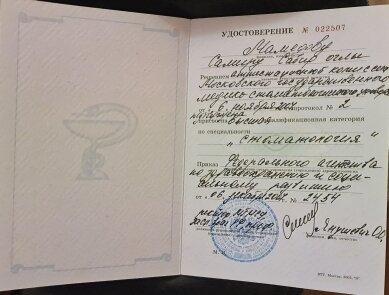 УДОСТОВЕРЕНИЕ № 022507
Мамедову
Самиру Сабир оглы
Решением аттестационной комиссии
Московского государственного
медико-стоматологического
от 6 ноября протокол № 2
присвоена высшая квалификационная категория
по специальности
"стоматология"
Приказ Федерального агентства
по здравоохранению и соци-
альному развитию
от № 2454
ректор МГМСУ
Янушевич О.О.
М.П.